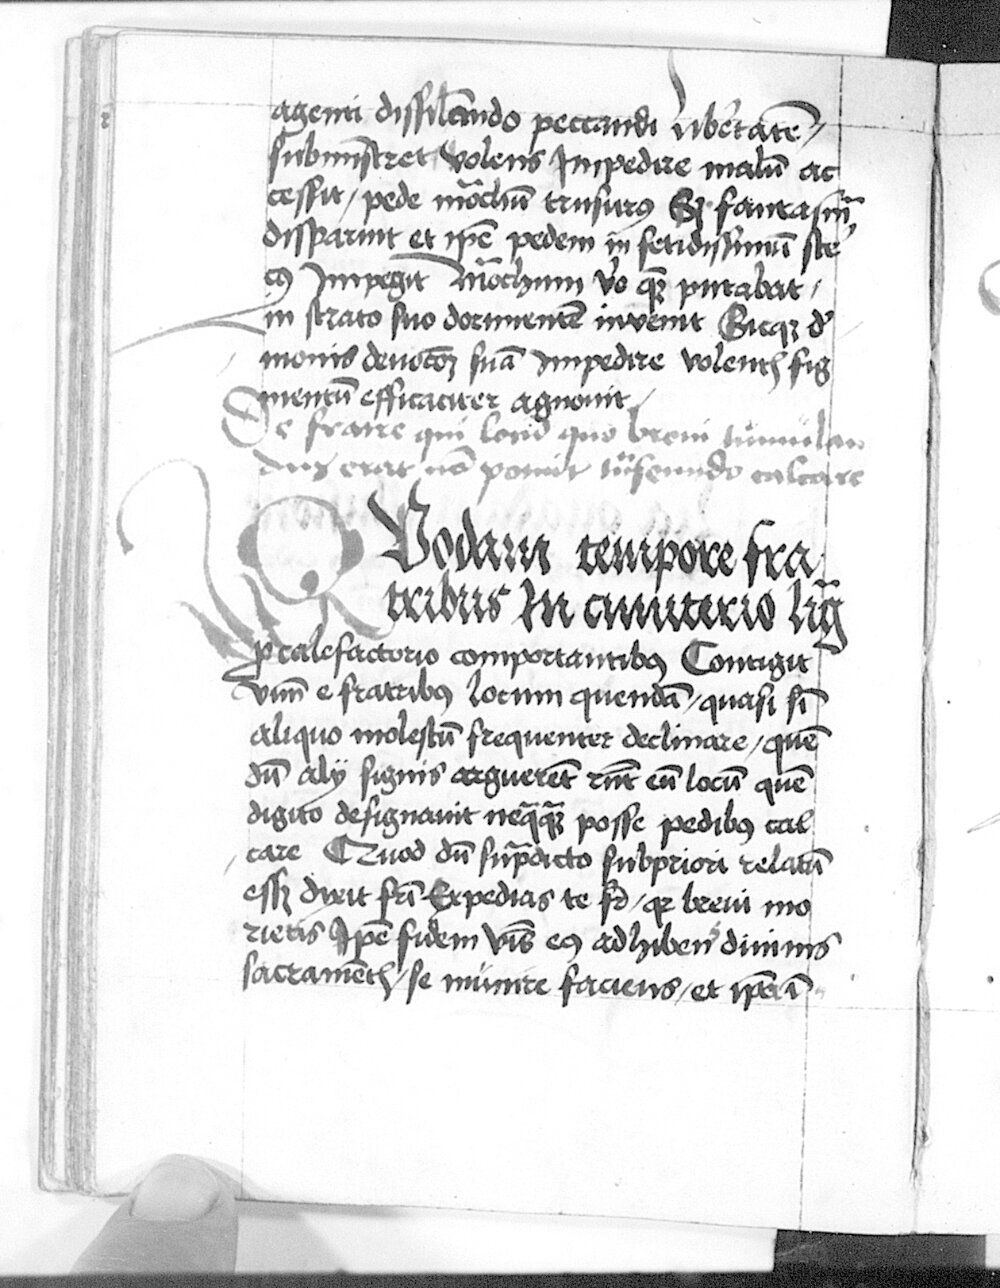 agenti dissil̄ando peccandi libertatē /
submīstret volens Impedire malū ac
cessit / pede mōchū trusurꝰ Sꝫ fantasm̄
disparuit et ip̄e pedem in fetidissimū ster
cꝰ Impegit Mōchum v̊o quē putabat /
in strato suo dormientē invenit Sicqꝫ de
monis devotōꝫ suā Impedire volentis fig
mentū efficaciter agnovit /
De fratre qui locū quo brevi tumulan
dus erat nō potuit tn̄seundo calcare
Quodam tempore fra
tribus In cimiterio lig
ꝓ calefactorio comportantibꝰ Contigit
vnū e fratribꝰ locum quendā / quasi sī
aliquo molestū frequenter declinare / quē
dū alij signis arguerēt rn̄t eū locū quē
digito designavit neq̄q̄ꝫ posse pedibꝰ cal
care Quod dū sup̄dicto subpriori relatū
essꝫ dixit fr̄i Expedias te fr̄ / qꝛ brevi mo
rieris Ip̄e fidem v̄bis eꝰ adhibens divinis
sacramētis / se munire faciens / et